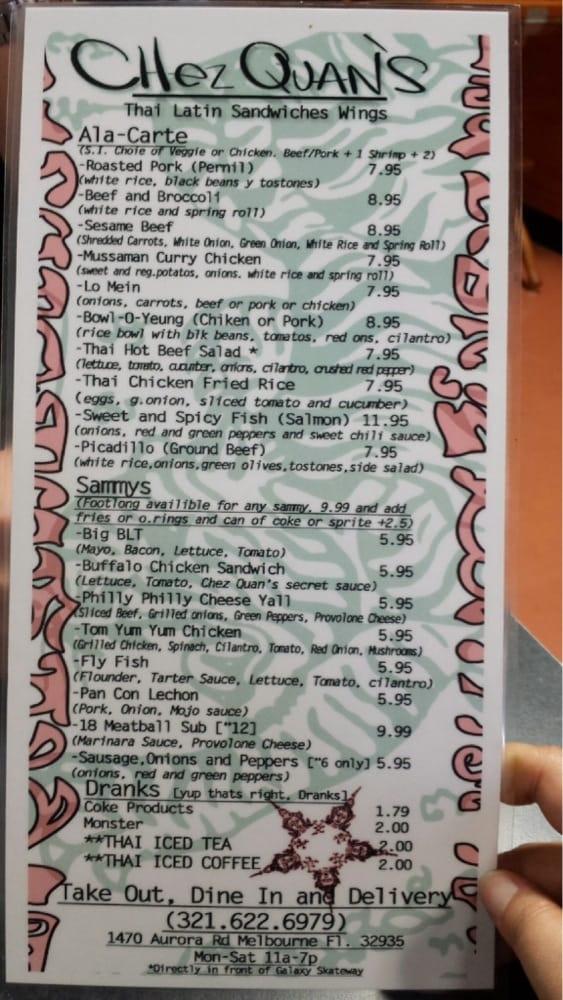 CHez QUAN'S
Thai Latin Sandwiches Wings
Ala-Carte
(S.I. Choie of Veggie or Chicken. Beef/Pork + 1 Shrimp + 2)
-Roasted Pork (Pernil) 7.95
(white rice, black beans y tostones)
-Beef and Broccoli 8.95
(white rice and spring roll)
-Sesame Beef 8.95
(Shredded Carrots, White Onion, Green Onion, White Rice and Spring Roll)
-Mussaman Curry Chicken 7.95
(sweet and reg.potatos, onions. white rice and spring roll)
-Lo Mein 7.95
(onions, carrots, beef or pork or chicken)
-Bowl-O-Yeung (Chiken or Pork) 8.95
(rice bowl with blk beans, tomatos, red ons, cilantro)
-Thai Hot Beef Salad * 7.95
(lettuce, tomato, cucumber, onions, cilantro, crushed red pepper)
-Thai Chicken Fried Rice 7.95
(eggs, g.onion, sliced tomato and cucumber)
-Sweet and Spicy Fish (Salmon) 11.95
(onions, red and green peppers and sweet chili sauce)
-Picadillo (Ground Beef) 7.95
(white rice,onions,green olives,tostones,side salad)
Sammys
(Footlong availible for any sammy, 9.99 and add
fries or o.rings and can of coke or sprite +2.5)
-Big BLT 5.95
(Mayo, Bacon, Lettuce, Tomato)
-Buffalo Chicken Sandwich 5.95
(Lettuce, Tomato, Chez Quan's secret sauce)
-Philly Philly Cheese Yall 5.95
(Sliced Beef, Grilled onions, Green Peppers, Provolone Cheese)
-Tom Yum Yum Chicken 5.95
(Grilled Chicken, Spinach, Cilantro, Tomato, Red Onion, Mushrooms)
-Fly Fish 5.95
(Flounder, Tarter Sauce, Lettuce, Tomato, cilantro)
-Pan Con Lechon 5.95
(Pork, Onion, Mojo sauce)
-18 Meatball Sub ["12] 9.99
(Marinara Sauce, Provolone Cheese)
-Sausage,Onions and Peppers ["6 only] 5.95
(onions, red and green peppers)
Dranks [yup thats right, Dranks]
Coke Products 1.79
Monster 2.00
**THAI ICED TEA 2.00
**THAI ICED COFFEE 2.00
Take Out, Dine In and Delivery
(321.622.6979)
1470 Aurora Rd Melbourne Fl. 32935
Mon-Sat 11a-7p
*Directly in front of Galaxy Skateway